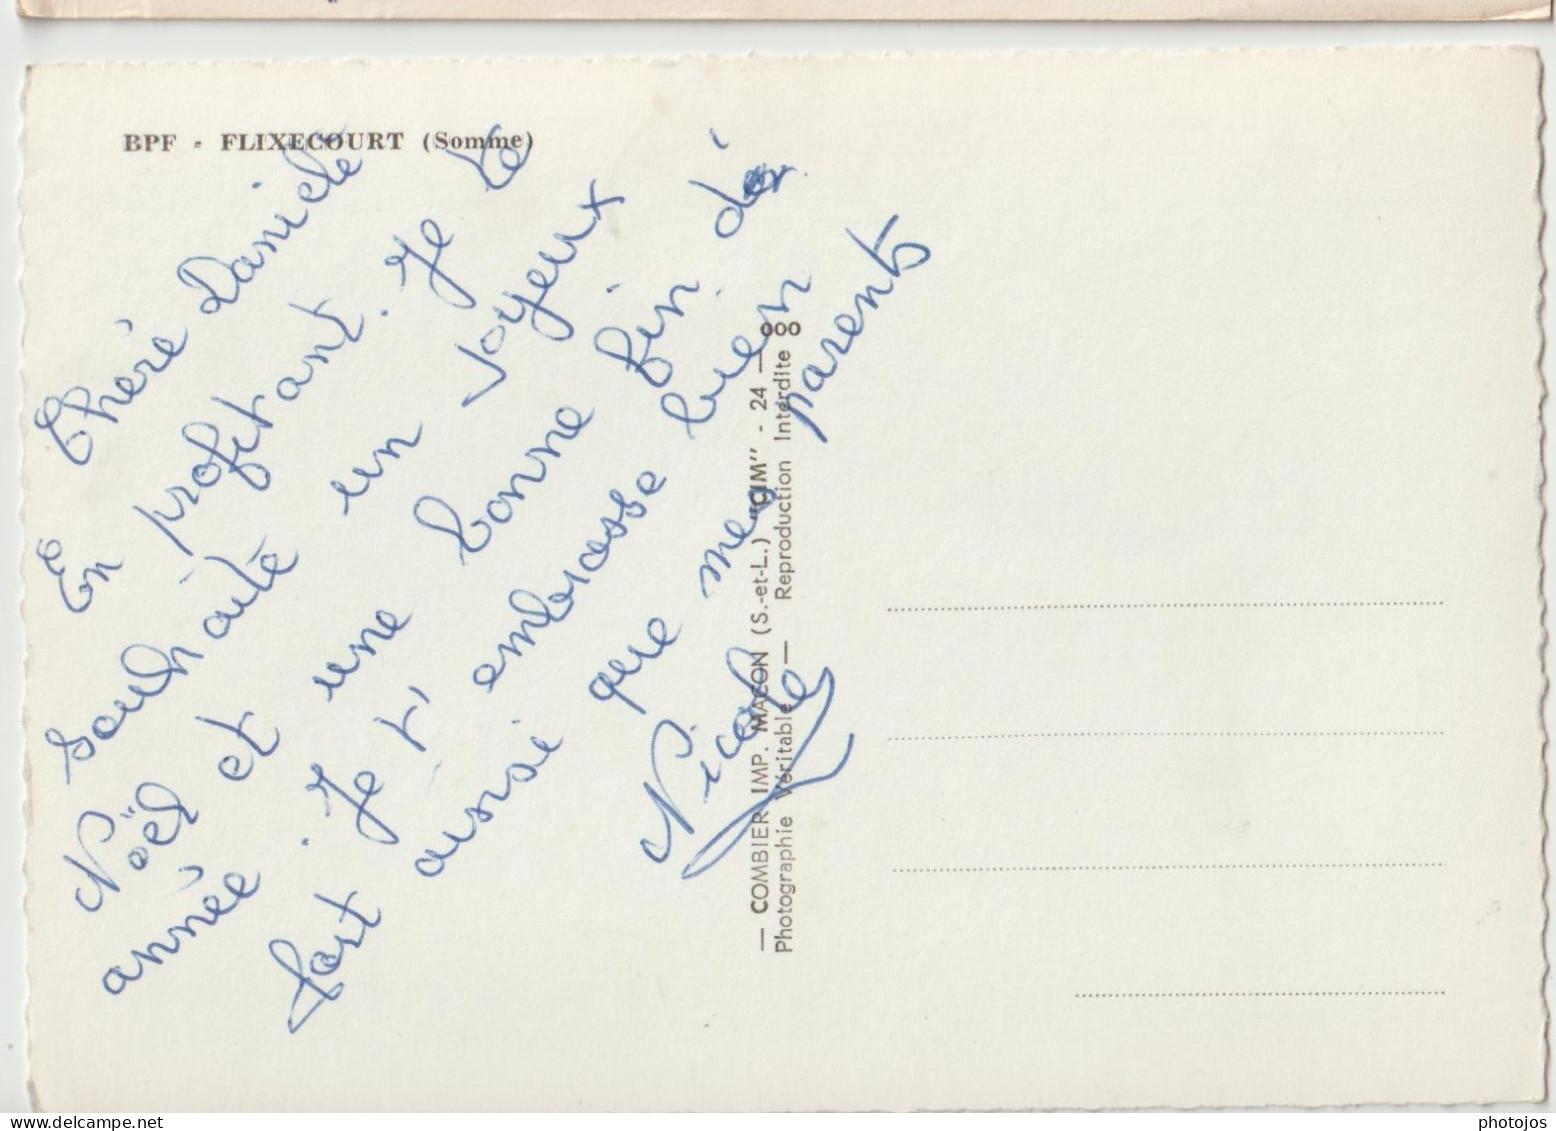 BPF - FLIXECOURT (Somme)
Chère Danièle
En profitant. Je te
souhaite un voyeux
Noël et une bonne fin d'
année. Je t'embrasse bien
fort ainsi que mes parents
Nicole
— COMBIER IMP. MACON (S.-et-L.) "CIM" - 24 — 000
Photographie Véritable — Reproduction Interdite
photojos